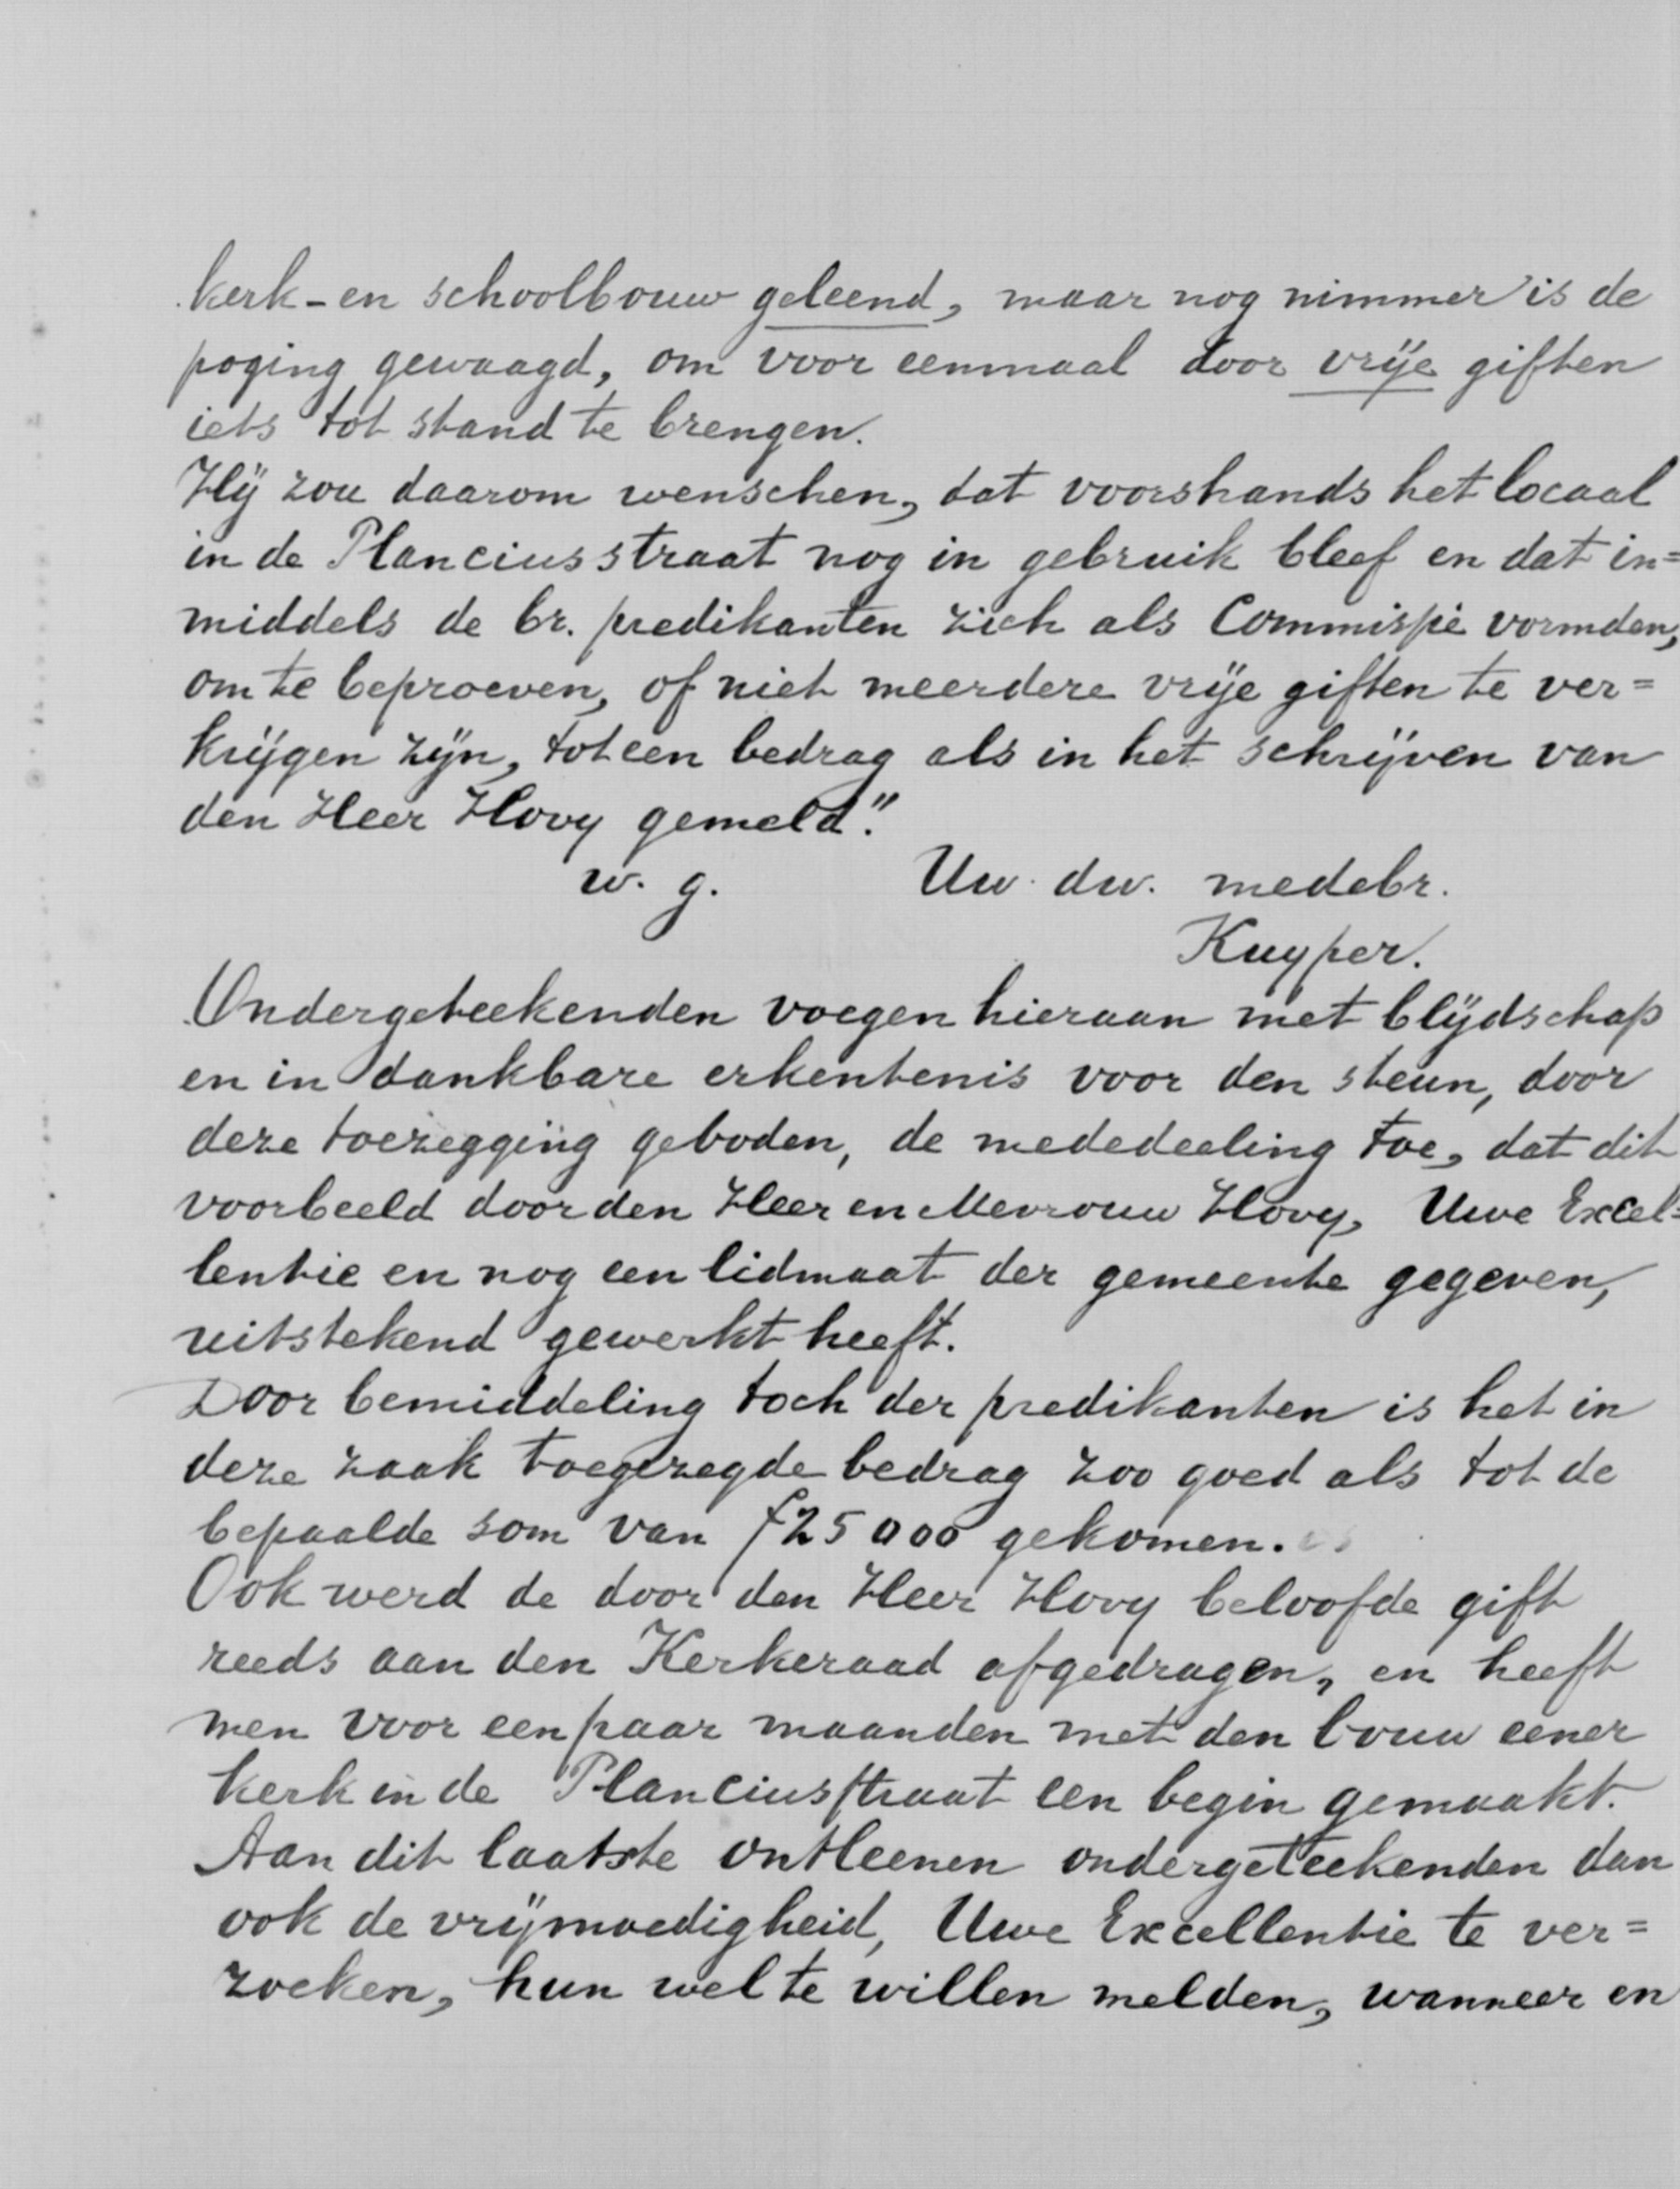 kerk-en schoolbouw geleend, maar nog nimmer is de
poging gewaagd, om voor eenmaal door vrije giften
iets tot stand te brengen.
Hij zou daarom wenschen, dat voorshands het locaal
in de Planciusstraat nog in gebruik bleef en dat in=
middels de br. predikanten zich als Commissie vormden,
om te beproeven, of niet meerdere vrije giften te ver=
krijgen zijn, tot een bedrag als in het schrijven van
den Heer Hovy gemeld."
w. g. Uw dw. medebr.
Kuyper.
Ondergeteekenden voegen hieraan met blijdschap
en in dankbare erkentenis voor den steun, door
deze toezegging geboden, de mededeeling toe, dat dit
voorbeeld door den Heer en Mevrouw Hovy, Uwe Excel=
lentie en nog een lidmaat der gemeente gegeven,
uitstekend gewerkt heeft.
Door bemiddeling toch der predikanten is het in
deze zaak toegezegde bedrag zoo goed als tot de
bepaalde som van f25000 gekomen.
Ook werd de door den Heer Hovy beloofde gift
reeds aan den Kerkeraad afgedragen, en heeft
men voor een paar maanden met den bouw eener
kerk in de Planciusstraat een begin gemaakt.
Aan dit laatste ontleenen ondergeteekenden dan
ook de vrijmoedigheid, Uwe Excellentie te ver=
zoeken, hun wel te willen melden, wanneer en